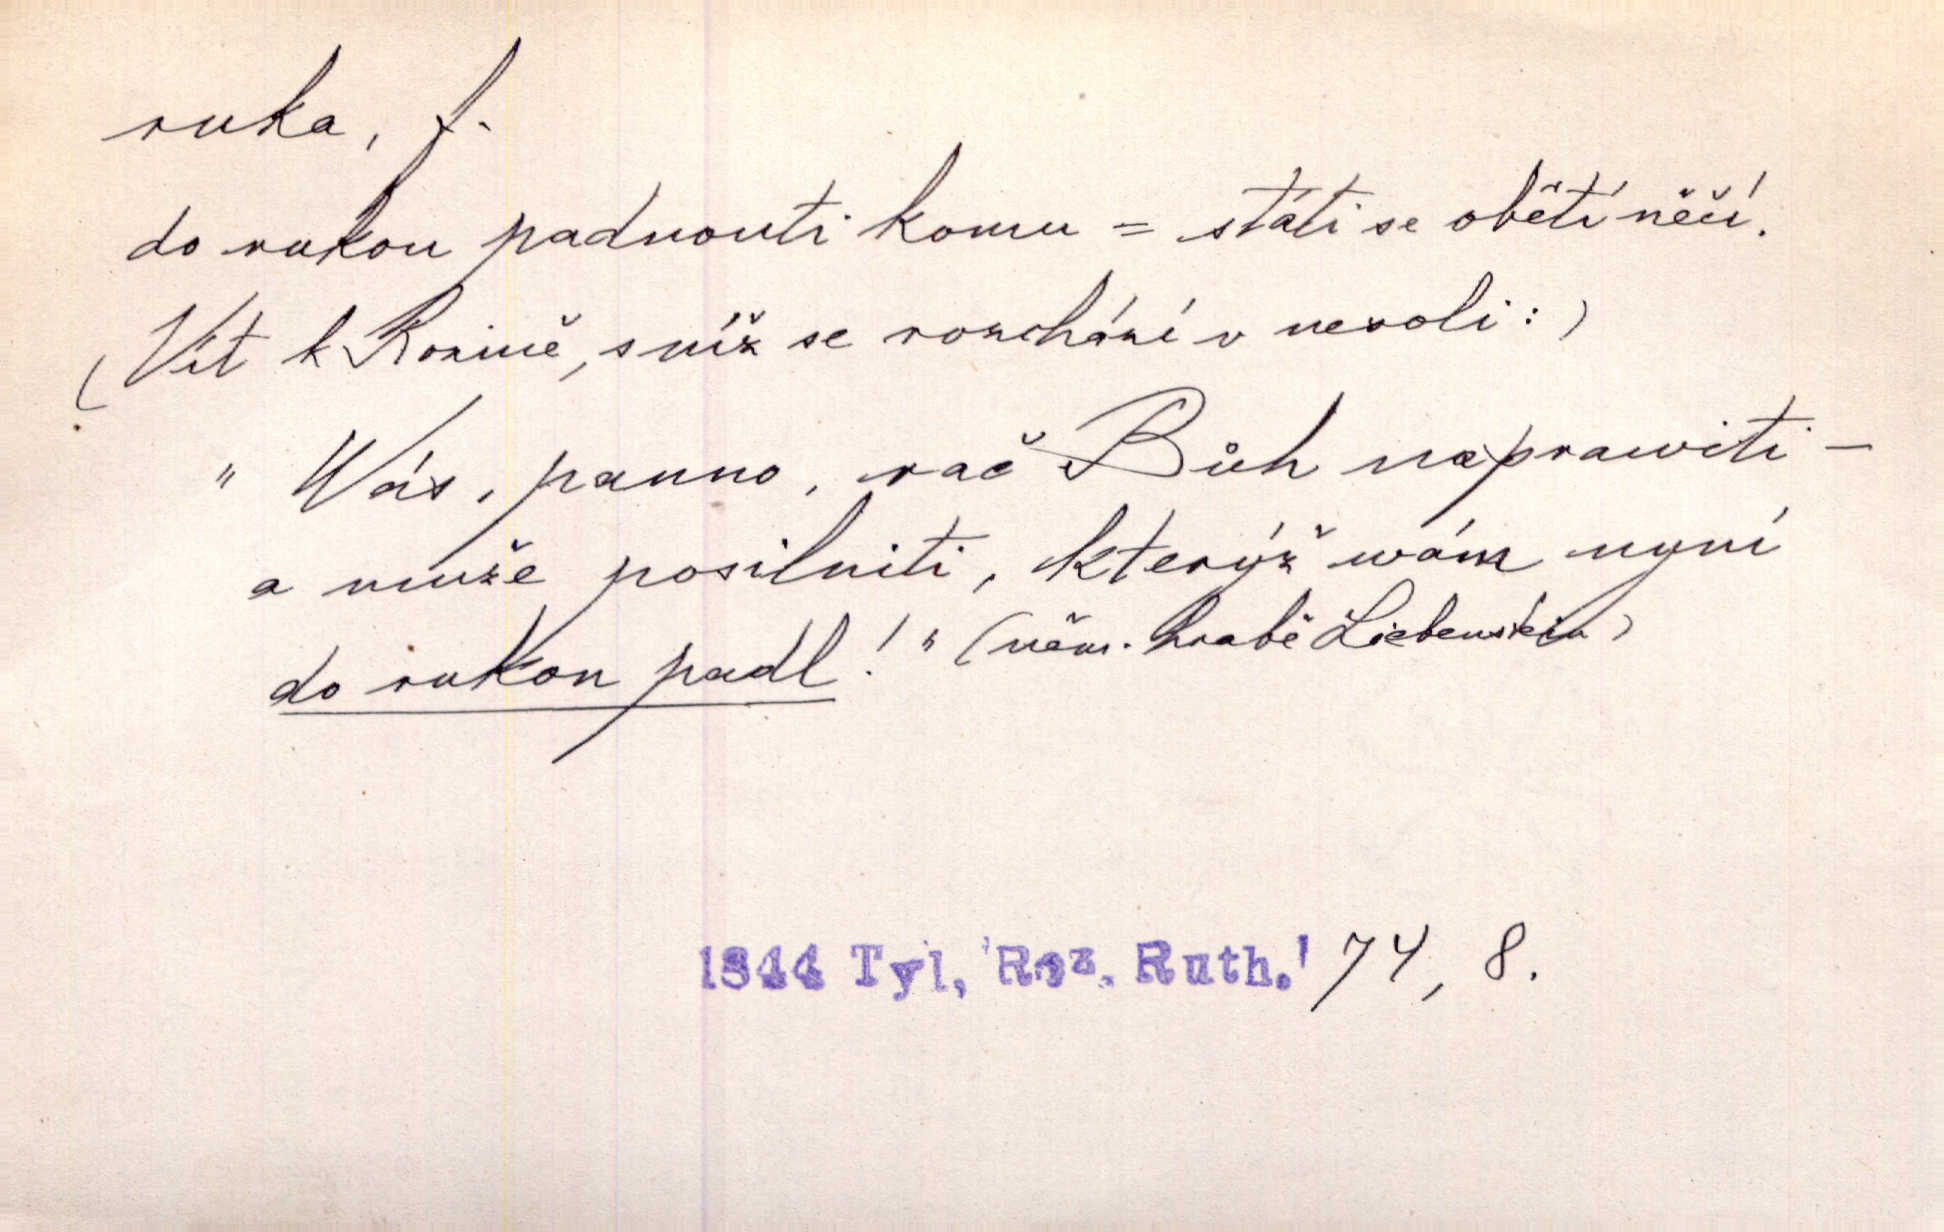 ruka, f.
do rukou padnouti komu = státi se obětí něčí.
(Vít k Rozině, s níž se rozchází v nevoli:)
"Wás, panno, rač Bůh naprawiti –
a muže posilniti, kterýž wám nyní
do rukou padl!" (něm. hrabě Liebenstein)
1844 Tyl, 'Roz. Ruth.' 74, 8.